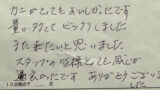 カニがとてもおいしかったです
量が多くてビックリしました。
また来たいと思いました。
スタッフの皆様とても感じが
良かったです ありがとうございました